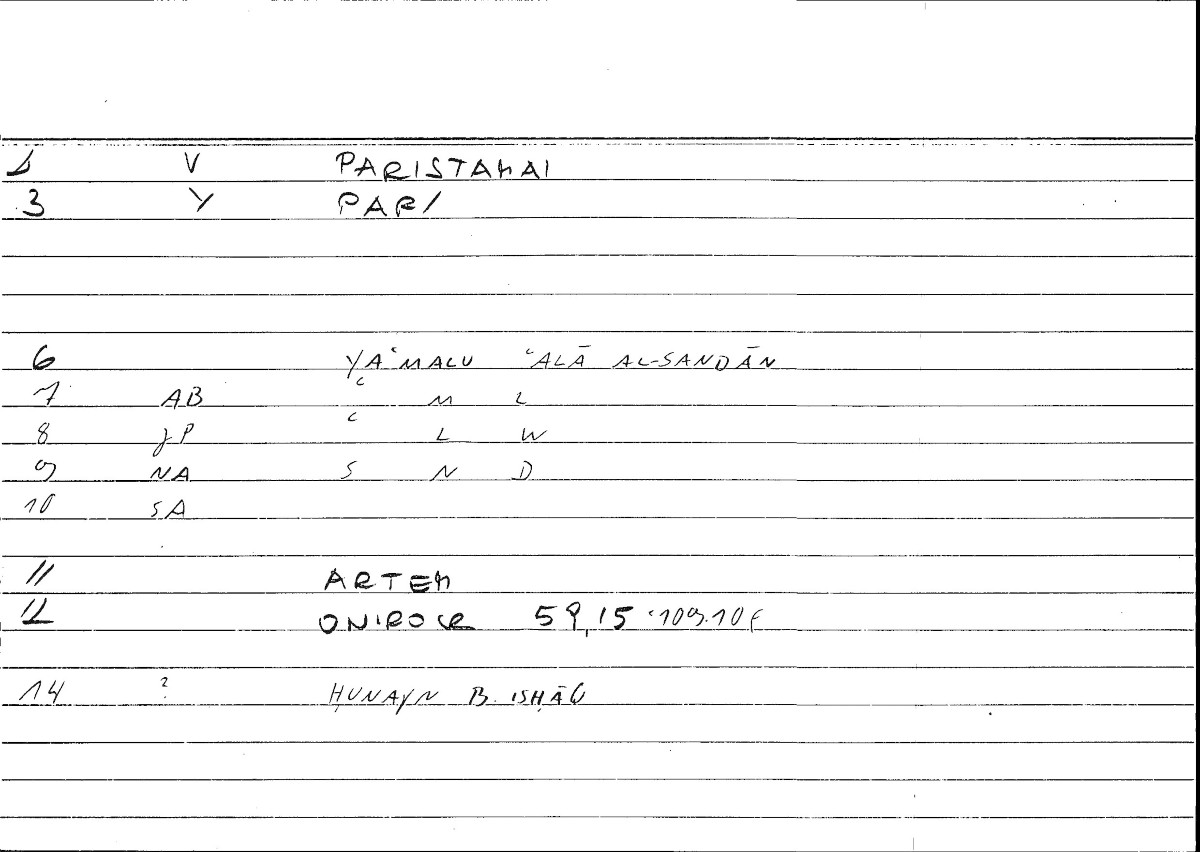 1 V PARISTAMAI
3 Y PAR/
6 YAʿMALU ʿALĀ AL-SANDĀN
7 AB ʿ M L
8 JP ʿ L W
9 NA S N D
10 SA
11 ARTEM
12 ONIROCR 59,15 109.10f
14 ? ḤUNAYN B. ISḤĀQ